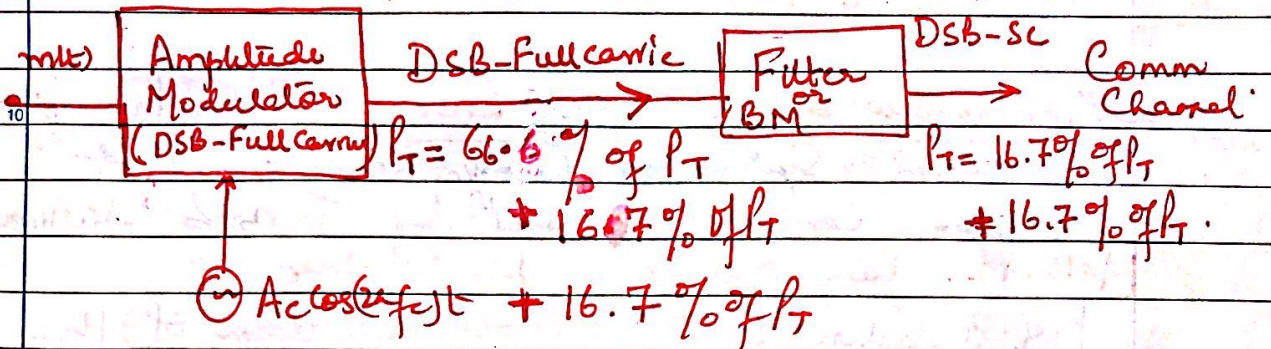 m(t)
Amplitude
Modulator
(DSB-Full Carrier)
DSB-Full carrie
Filter
or
BM
DSB-SC
Comm
Channel.
10
P_T = 66.6 % of P_T
+ 16.7 % of P_T
+ 16.7 % of P_T
P_T = 16.7% of P_T
+ 16.7 % of P_T.
~ Ac cos(2πfc)t